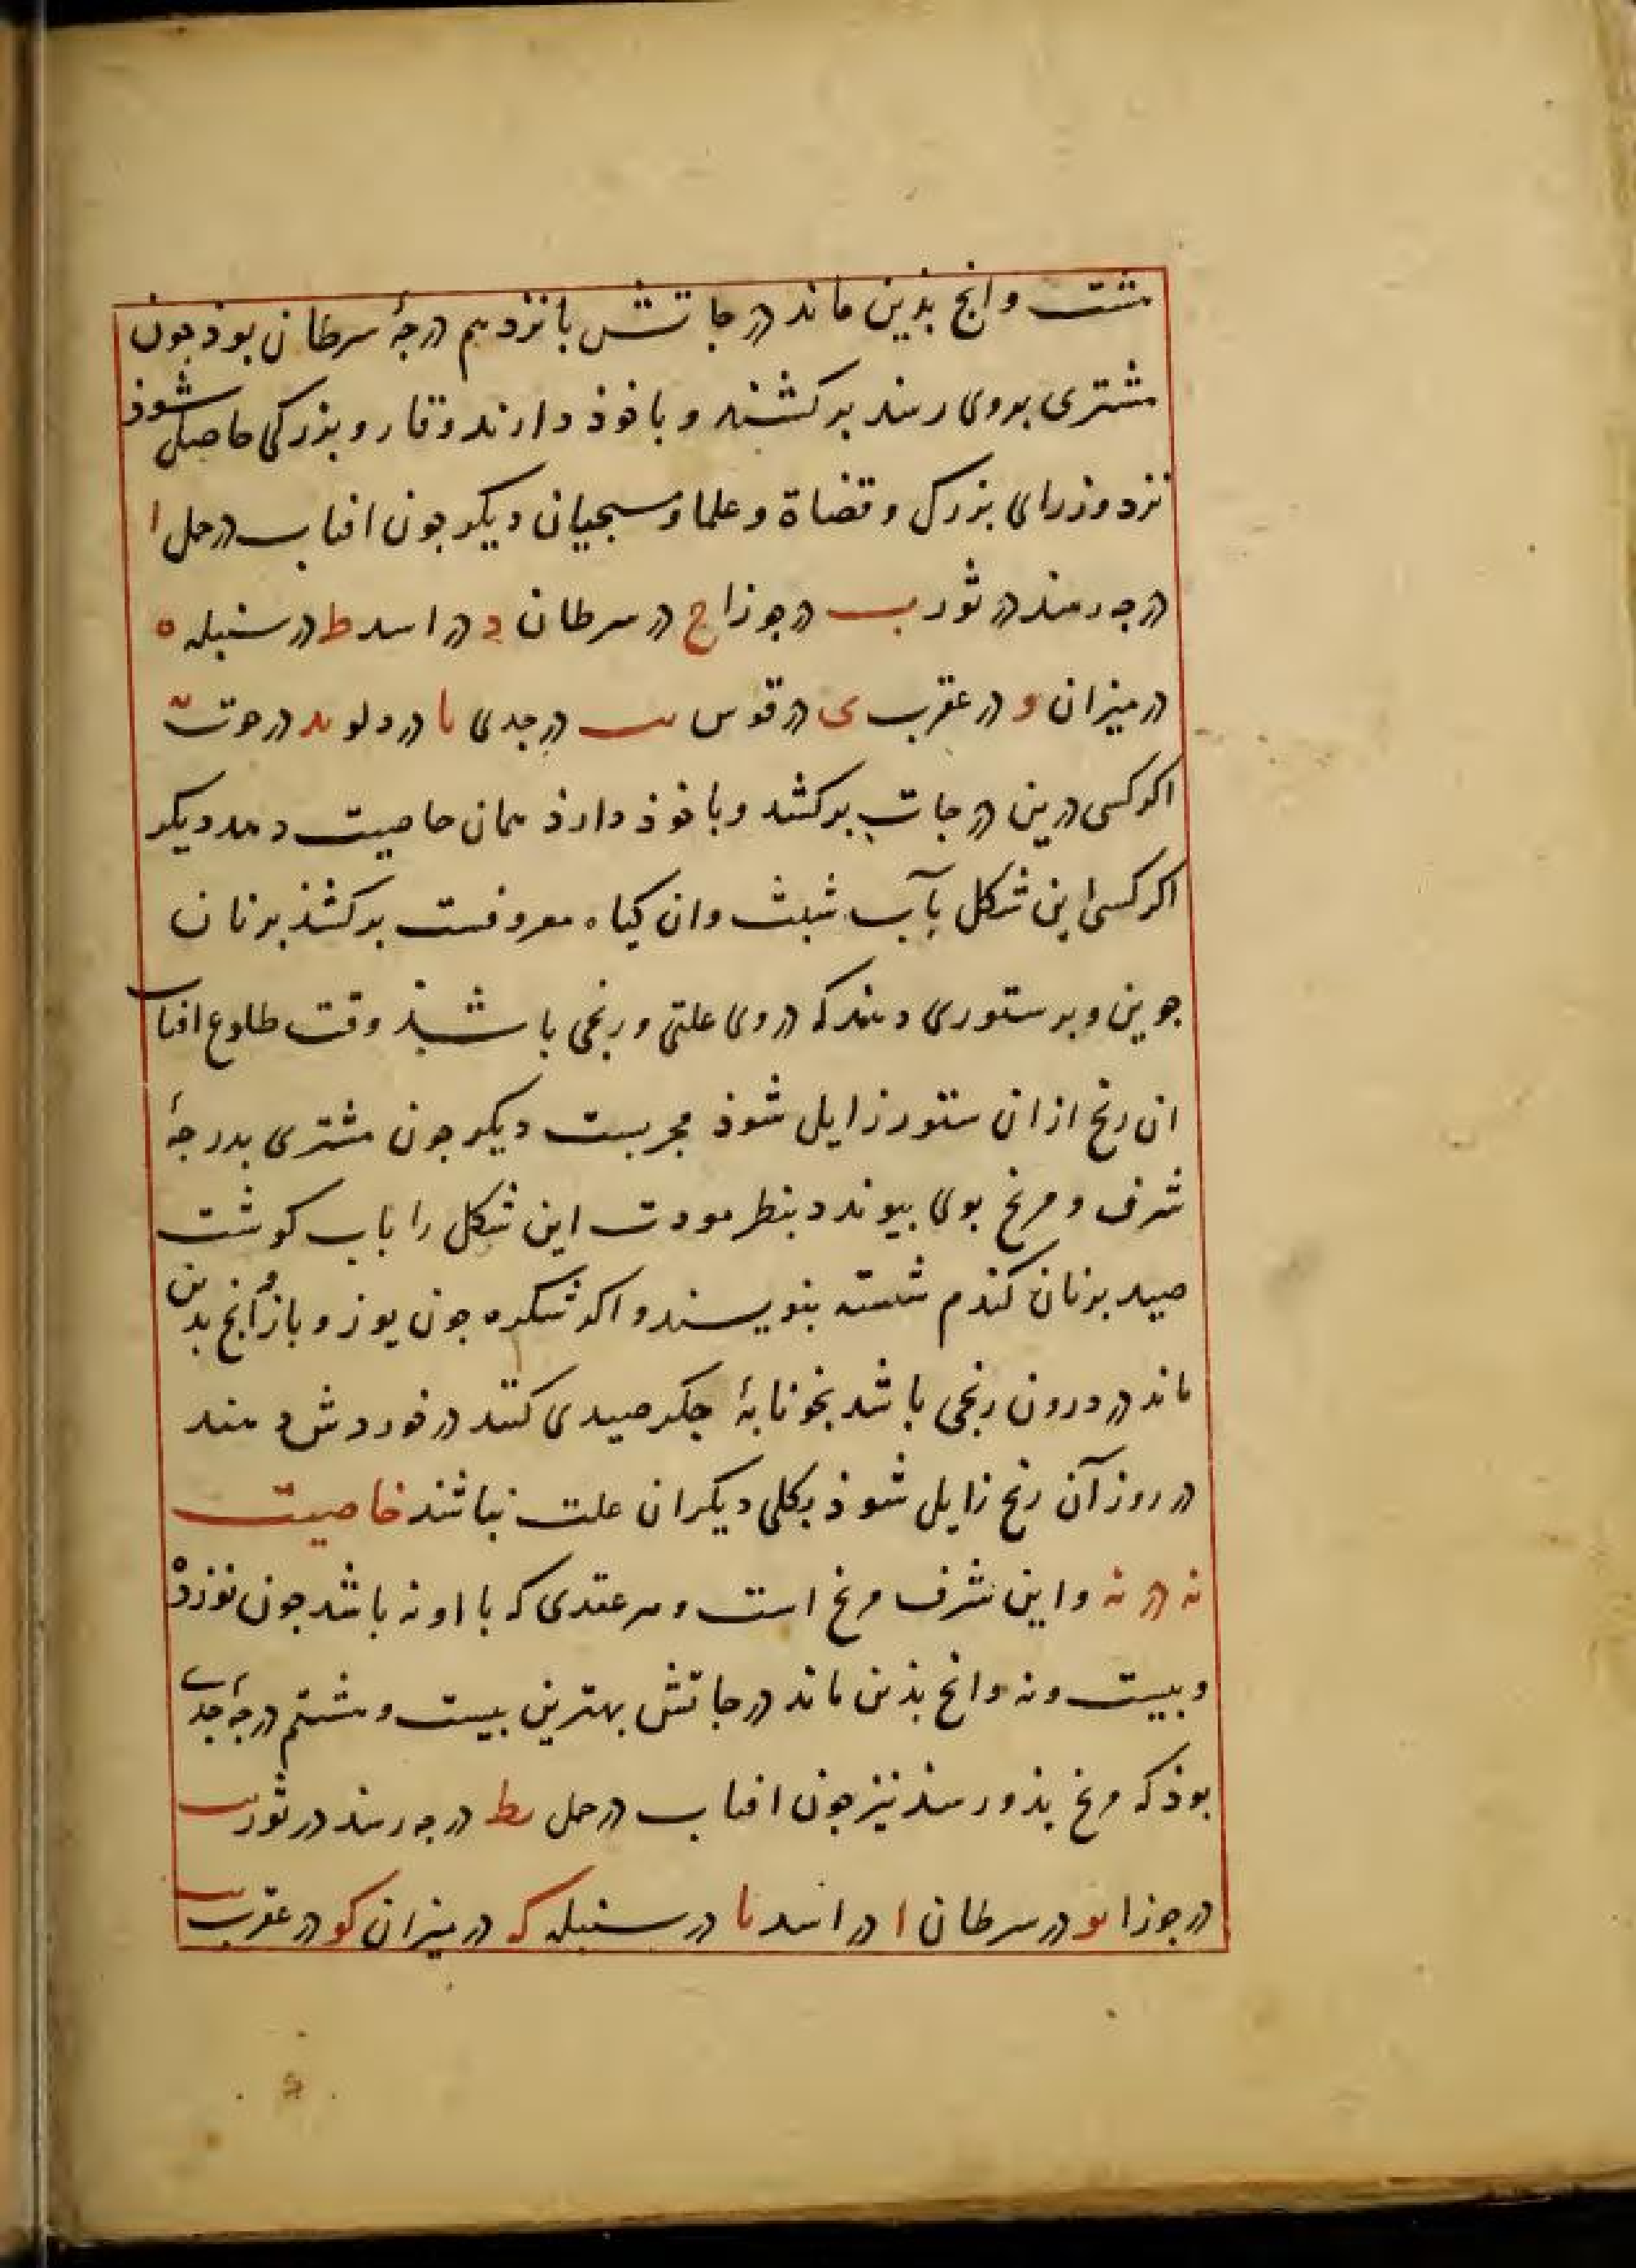 هشت وانج بذین ماند درجاتش بانزدهم درجهٔ سرطان بوذ جون
مشتری بروی رسد بر کشند و با خوذ دارند وقار و بزرکی حاصل شوذ
نزد وزرای بزرک و قضاة و علما و مسیحیان دیکر جون افتاب در حمل ا
درجه رسد در ثور ب در جوزا ج در سرطان د در اسد ط در سنبله ه
در میزان و در عقرب ی در قوس ىب در جدی ىا در دلو ىد در حوت
اکر کسی درین درجات بر کشد و با خوذ دارذ همان خاصیت دهد دیکر
اکر کسی این شکل بآب شبث وان کیاه معروفست بر کشذ بر نان
جوین و بر ستوری دهند که در وی علتی و رنجی باشذ وقت طلوع افتاب
ان رنج از ان ستور زایل شوذ مجربست دیکر جون مشتری بدرجهٔ
شرف و مریخ بوی بیوندد بنظر مودت این شکل را باب کوشت
صید بر نان کندم شسته بنویسند و اکر شکره جون یوز و باز وانج بدین
ماند در درون رنجی باشد بخونابهٔ جکر صیدی کنند در خوردش دهند
در روز آن رنج زایل شوذ بکلی دیکر ان علت نباشند خاصیت
نه در نه واین شرف مریخ است و هر عقدی که با او نه باشد جون نوزده
و بیست و نه وانج بذین ماند درجاتش بهترین بیست و هشتم درجهٔ جدی
بوذ که مریخ بذو رسذ نیز جون افتاب در حمل ىط درجه رسد در ثور ىب
در جوزا ىو در سرطان ا در اسد ىا در سنبله که در میزان کو در عقرب